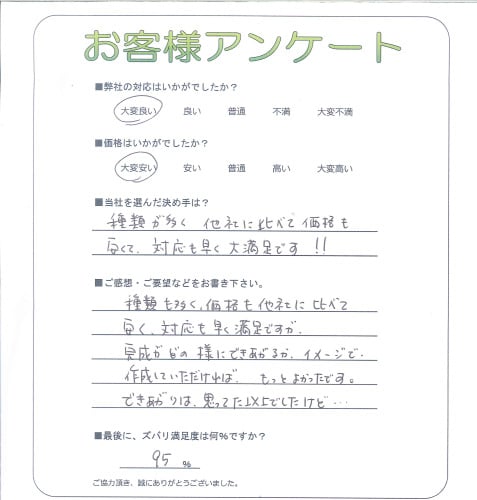 お客様アンケート
■弊社の対応はいかがでしたか？
大変良い 良い 普通 不満 大変不満
■価格はいかがでしたか？
大変安い 安い 普通 高い 大変高い
■当社を選んだ決め手は？
種類が多く 他社に比べて価格も
安くて、対応も早く大満足です!!
■ご感想・ご要望などをお書き下さい。
種類も多く、価格も他社に比べて
安く、対応も早く満足ですが、
完成がどの様にできあがるか、イメージで
作成していただければ、もっとよかったです。
できあがりは、思ってた以上でしたけど…
■最後に、ズバリ満足度は何％ですか？
95 %
ご協力頂き、誠にありがとうございました。